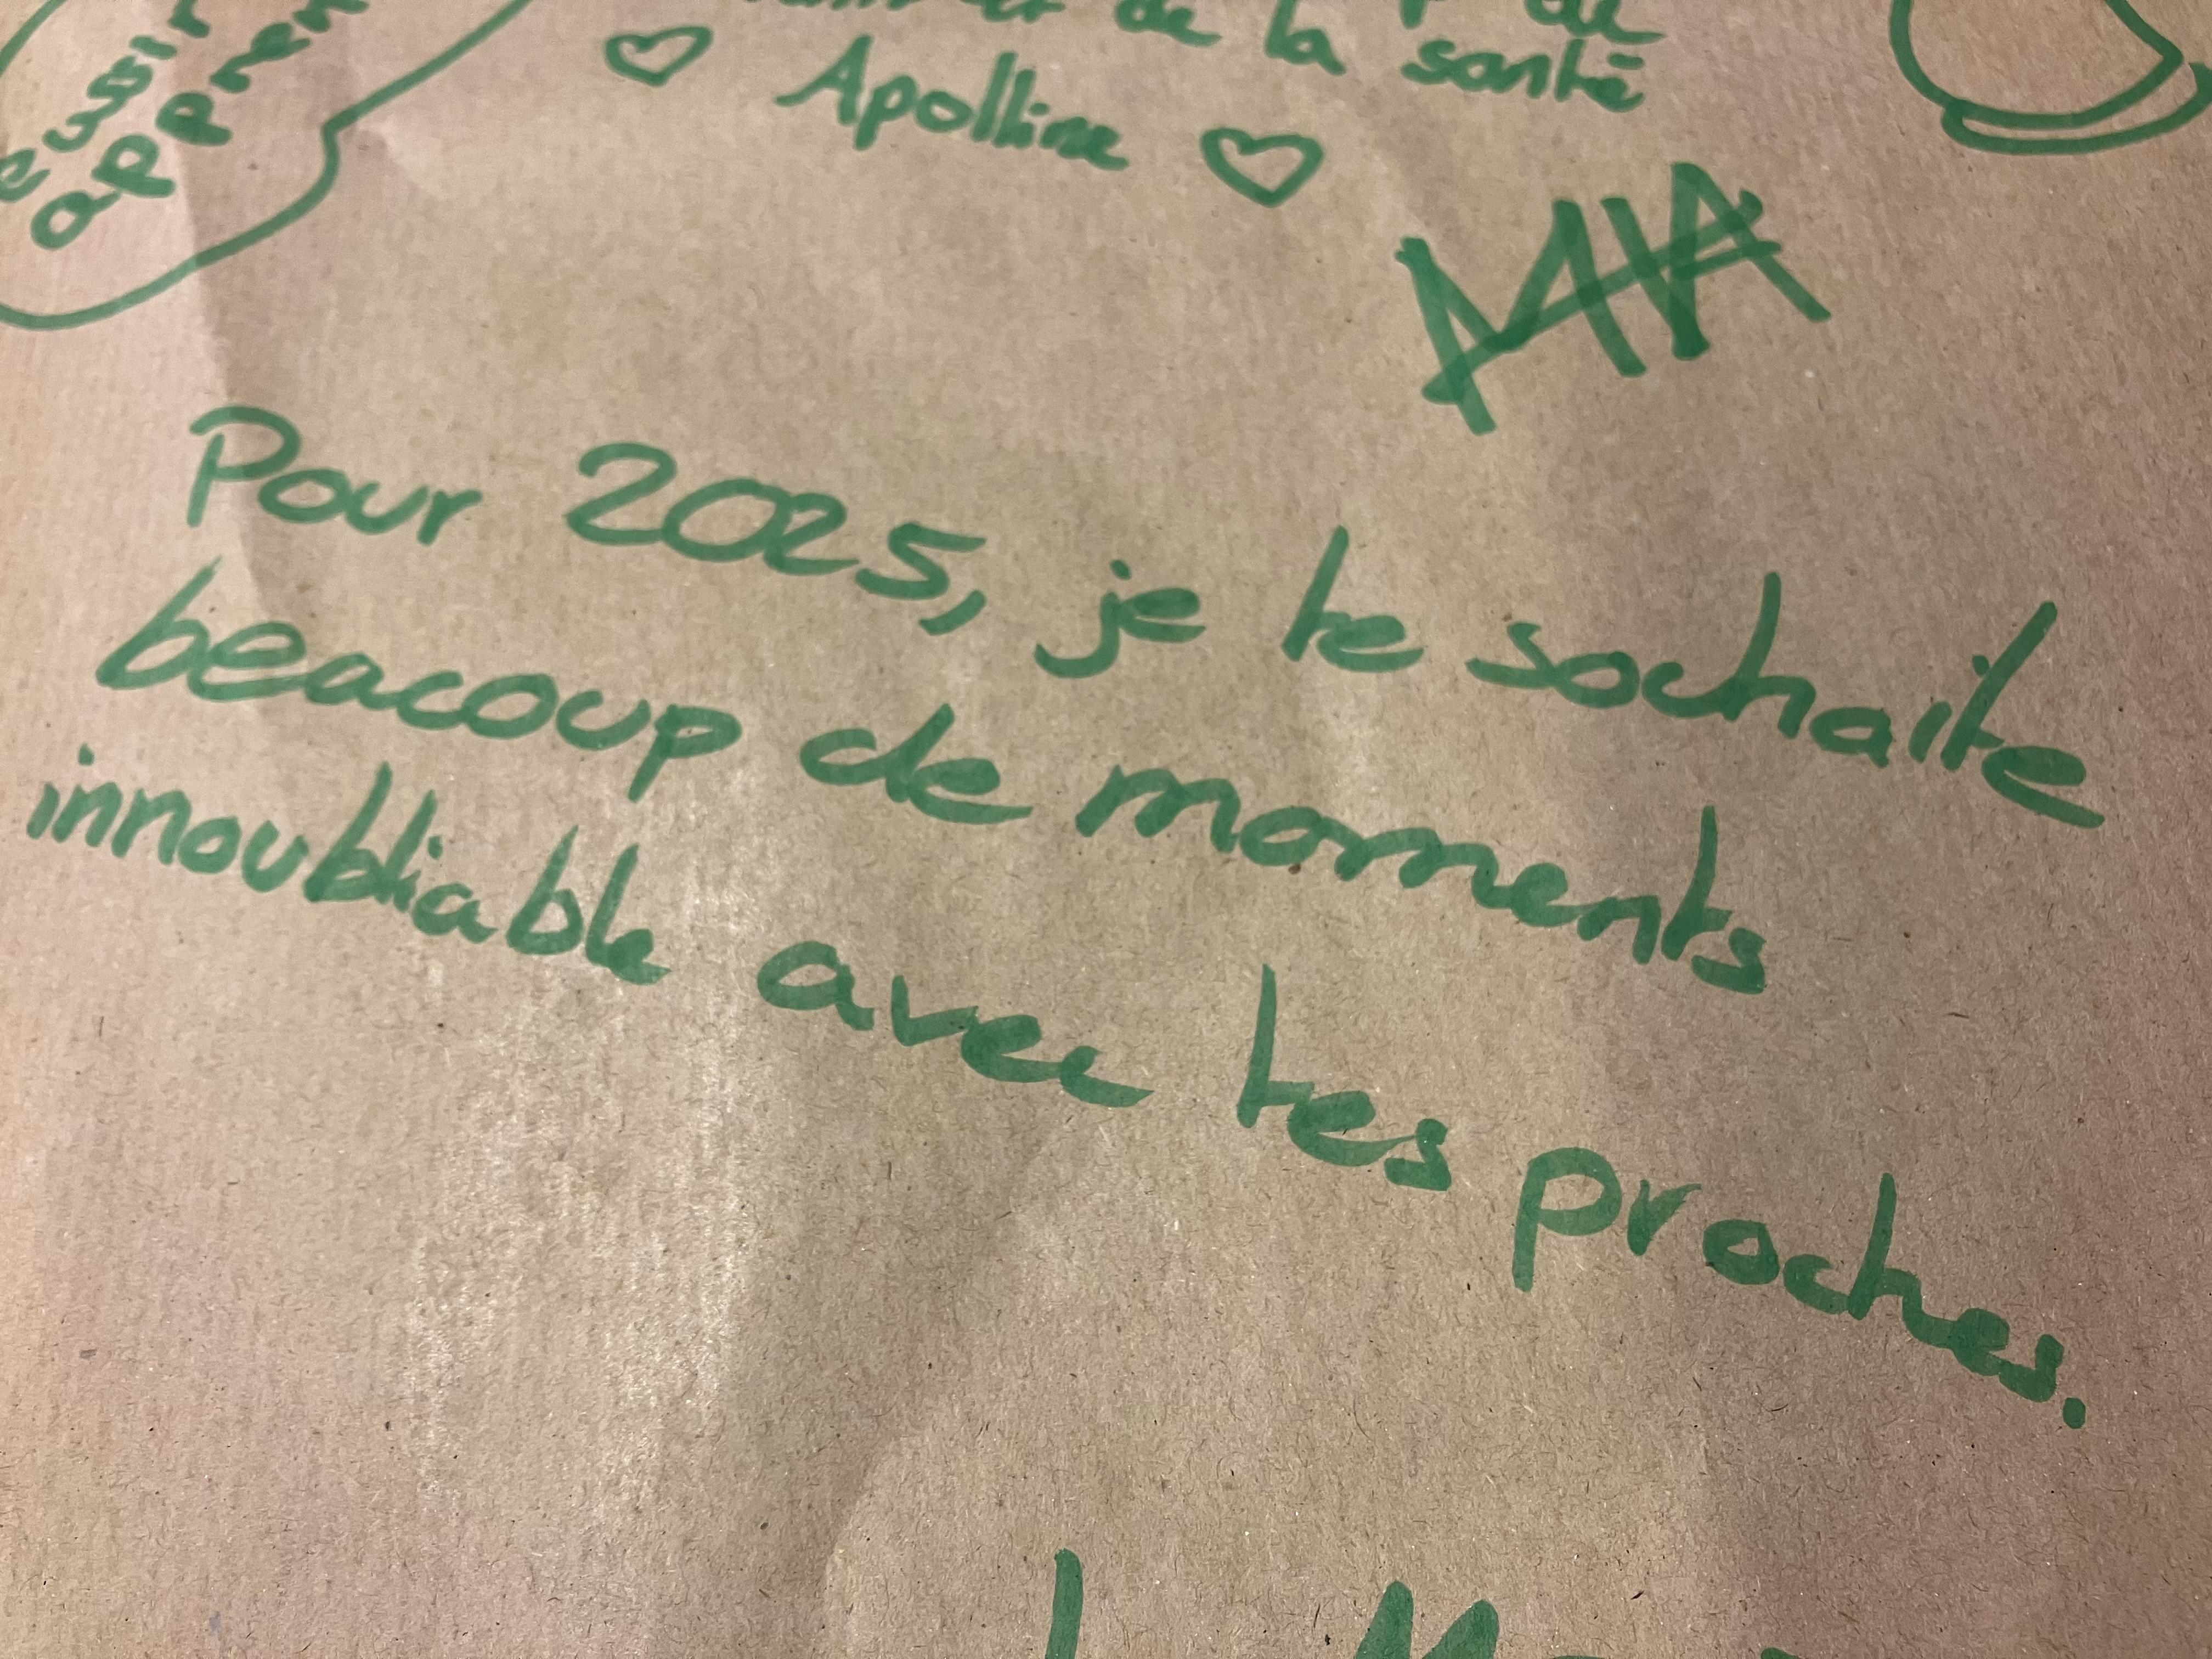 de la santé
♡ Apolline ♡
Pour 2025, je te sochaite
beacoup de moments
innoubliable avec tes proches.